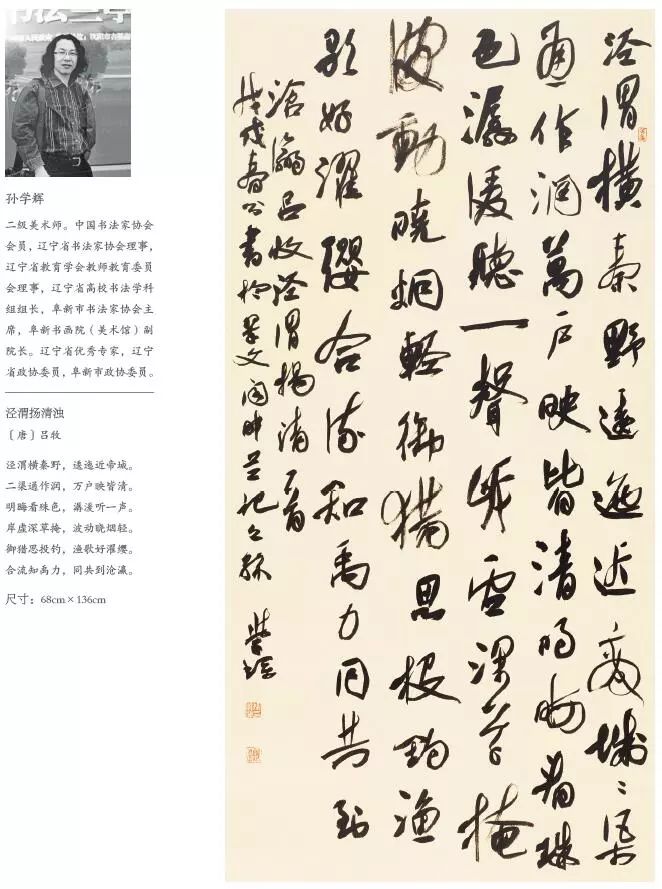 孙学辉
二级美术师。中国书法家协会
会员，辽宁省书法家协会理事，
辽宁省教育学会教师教育委员
会理事，辽宁省高校书法学科
组组长，阜新市书法家协会主
席，阜新书画院（美术馆）副
院长。辽宁省优秀专家，辽宁
省政协委员，阜新市政协委员。
泾渭扬清浊
〔唐〕吕牧
泾渭横秦野，逶迤近帝城。
二渠通作润，万户映皆清。
明晦看珠色，潺湲听一声。
岸虚深草掩，波动晓烟轻。
御猎思投钓，渔歌好濯缨。
合流知禹力，同共到沧瀛。
尺寸：68cm×136cm
泾渭横秦野逶迤近帝城二渠
通作润萬户映皆清明晦看珠
色潺湲聽一聲岸虚深草掩
波動曉烟輕御獵思投釣漁
歌好濯缨合流知禹力同共到
滄瀛吕牧泾渭揚清一首
戊戌春書於